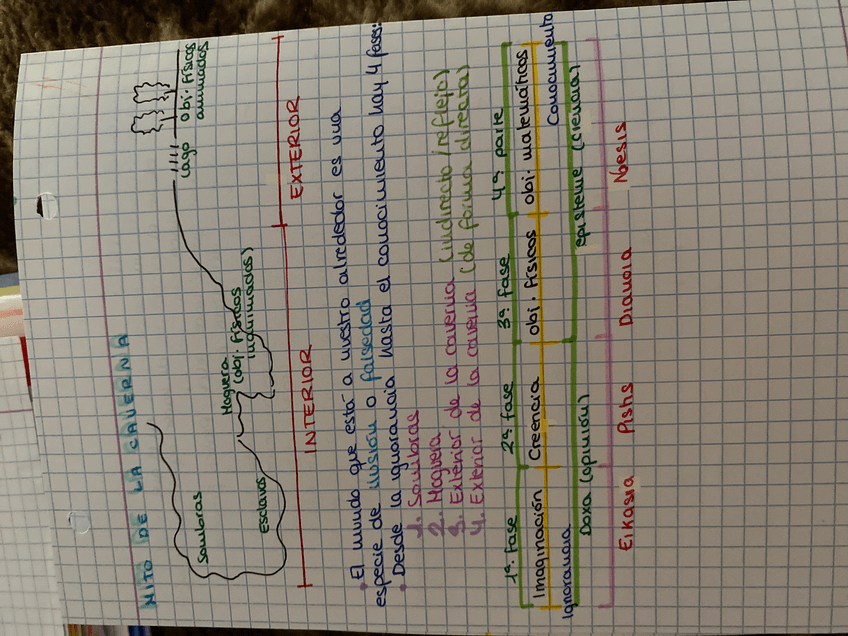 MITO DE LA CAVERNA
Sombras
Esclavos
Hoguera
(obj. físicos
inanimados)
Lago
obj. físicos
animados
INTERIOR
EXTERIOR
• El mundo que está a nuestro alrededor es una
especie de ilusión o falsedad
• Desde la ignorancia hasta el conocimiento hay 4 fases:
1. Sombras
2. Hoguera
3. Exterior de la caverna (indirecto/reflejo)
4. Exterior de la caverna (de forma directa)
1ª fase 2ª fase 3ª fase 4ª parte
Imaginación Creencia obj. físicos obj. matemáticos
Ignorancia Conocimiento
Doxa (opinión) episteme (ciencia)
Eikasia Pistis Dianoia Noesis